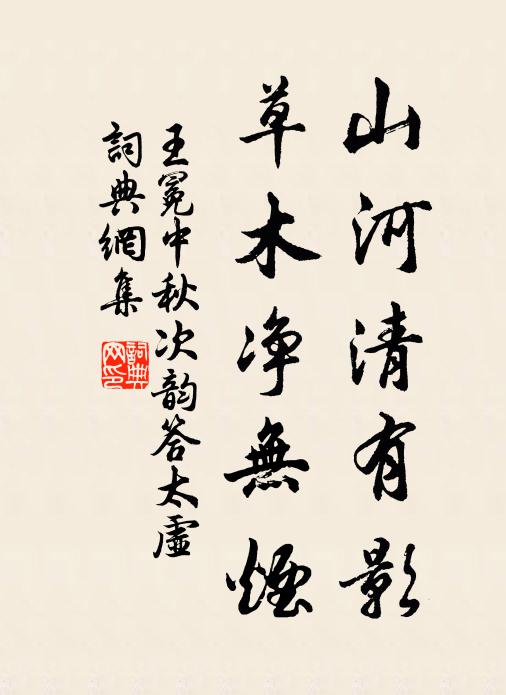 山河清有影
草木淨無煙
王冕中秋次韵答太虛
詞典網集
詞典網印